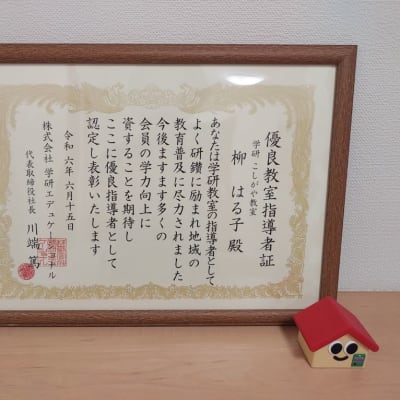 優良教室指導者証
学研・こしがや教室
柳 はる子 殿
あなたは学研教室の指導者として
よく研鑽に励まれ地域の
教育普及に尽力されました
今後ますます多くの
会員の学力向上に
資することを期待し
ここに優良指導者として
認定し表彰いたします
令和六年六月十五日
株式会社 学研エデュケーショナル
代表取締役社長 川端 篤